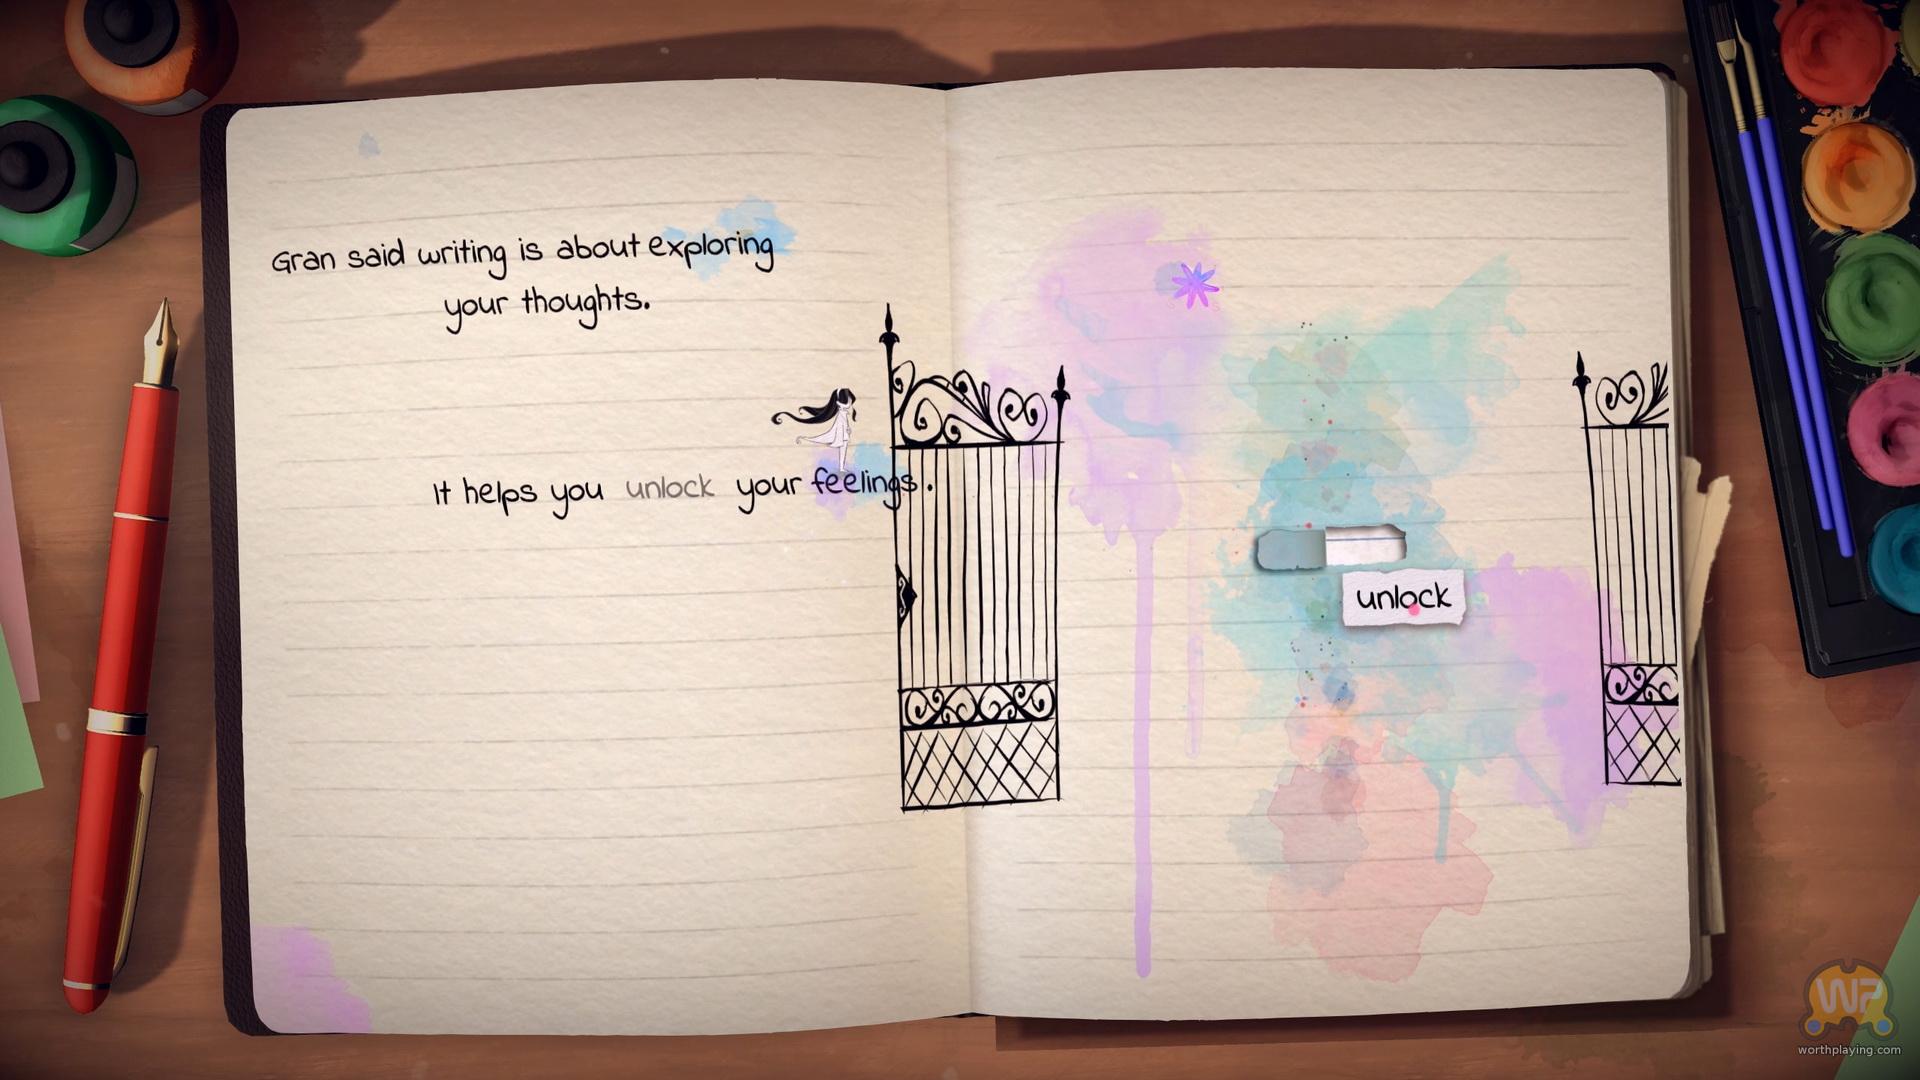 Gran said writing is about exploring
your thoughts.
It helps you unlock your feelings.
unlock
WP
worthplaying.com